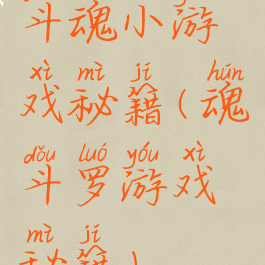 斗魂小游
xì mì jí hún
戏秘籍(魂
dǒu luó yóu xì
斗罗游戏
mì jí
秘籍)